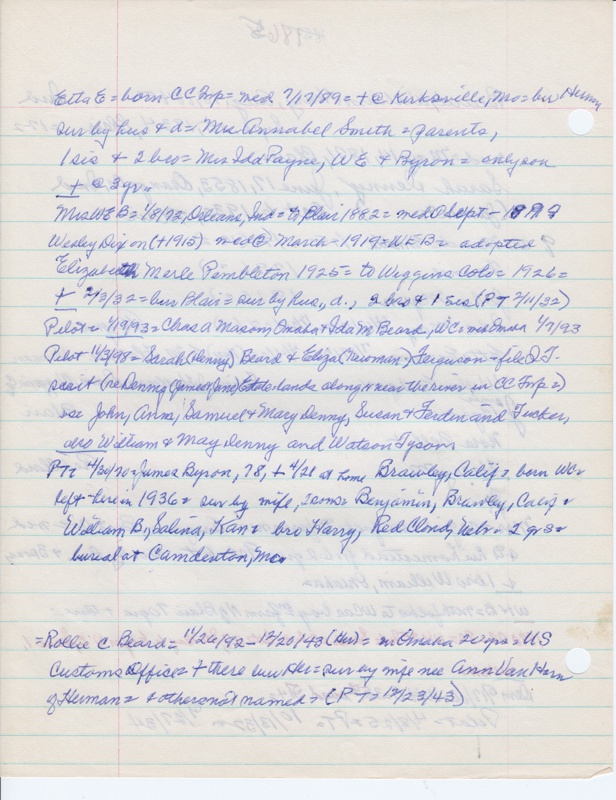 Etta E = born CC Twp = med 7/17/89 = + @ Kirksville, Mo = bu Herman
sur by hus & d = Mrs Annabel Smith = parents,
1 sis & 2 bro = Mrs Ida Payne, WE & Byron = only son
+ @ 3 yr.
Mrs WEB = 1/8/72, Orleans, Ind = to Blair 1882 = med Sept - 
Wesley Dixon (+1915) med @ March - 1919 = WEB = adopted
Elizabeth Merle Pembleton 1925 = to Wiggins Colo = 1926 =
+ 2/3/32 = bur Blair = sur by hus, d., 2 bro & 1 sis (PT 2/11/32)
Pilot = 1/19/93 = Chas A Mason, Omaha & Ida M Beard, WC = med Omaha 1/7/93
Pilot 11/3/98 = Sarah (Denny) Beard & Eliza (Newman) Ferguson = file Q.T.
suit (re Denny (James & Jane) Estate lands along & near the river in CC Twp =)
vs = John, Anna, Samuel & Mary Denny, Susan & Ferdinand Tucker,
also William & May Denny and Watson Tyson
PT = 4/30/70 = James Byron, 78, + 4/21 at home Brawley, Calif = born WC =
left here in 1936 = sur by wife, 2 sons = Benjamin, Brawley, Calif &
William B, Salina, Kan = bro Harry, Red Cloud, Nebr = 2 gr s =
burial at Camdenton, Mo =
= Rollie C Beard = 11/26/92 - 12/20/43 (Her) = in Omaha 20 yrs = US
Customs Office = + there bur Her = sur by wife nee Ann Van Horn
of Herman = & others not named = (PT = 12/23/43)